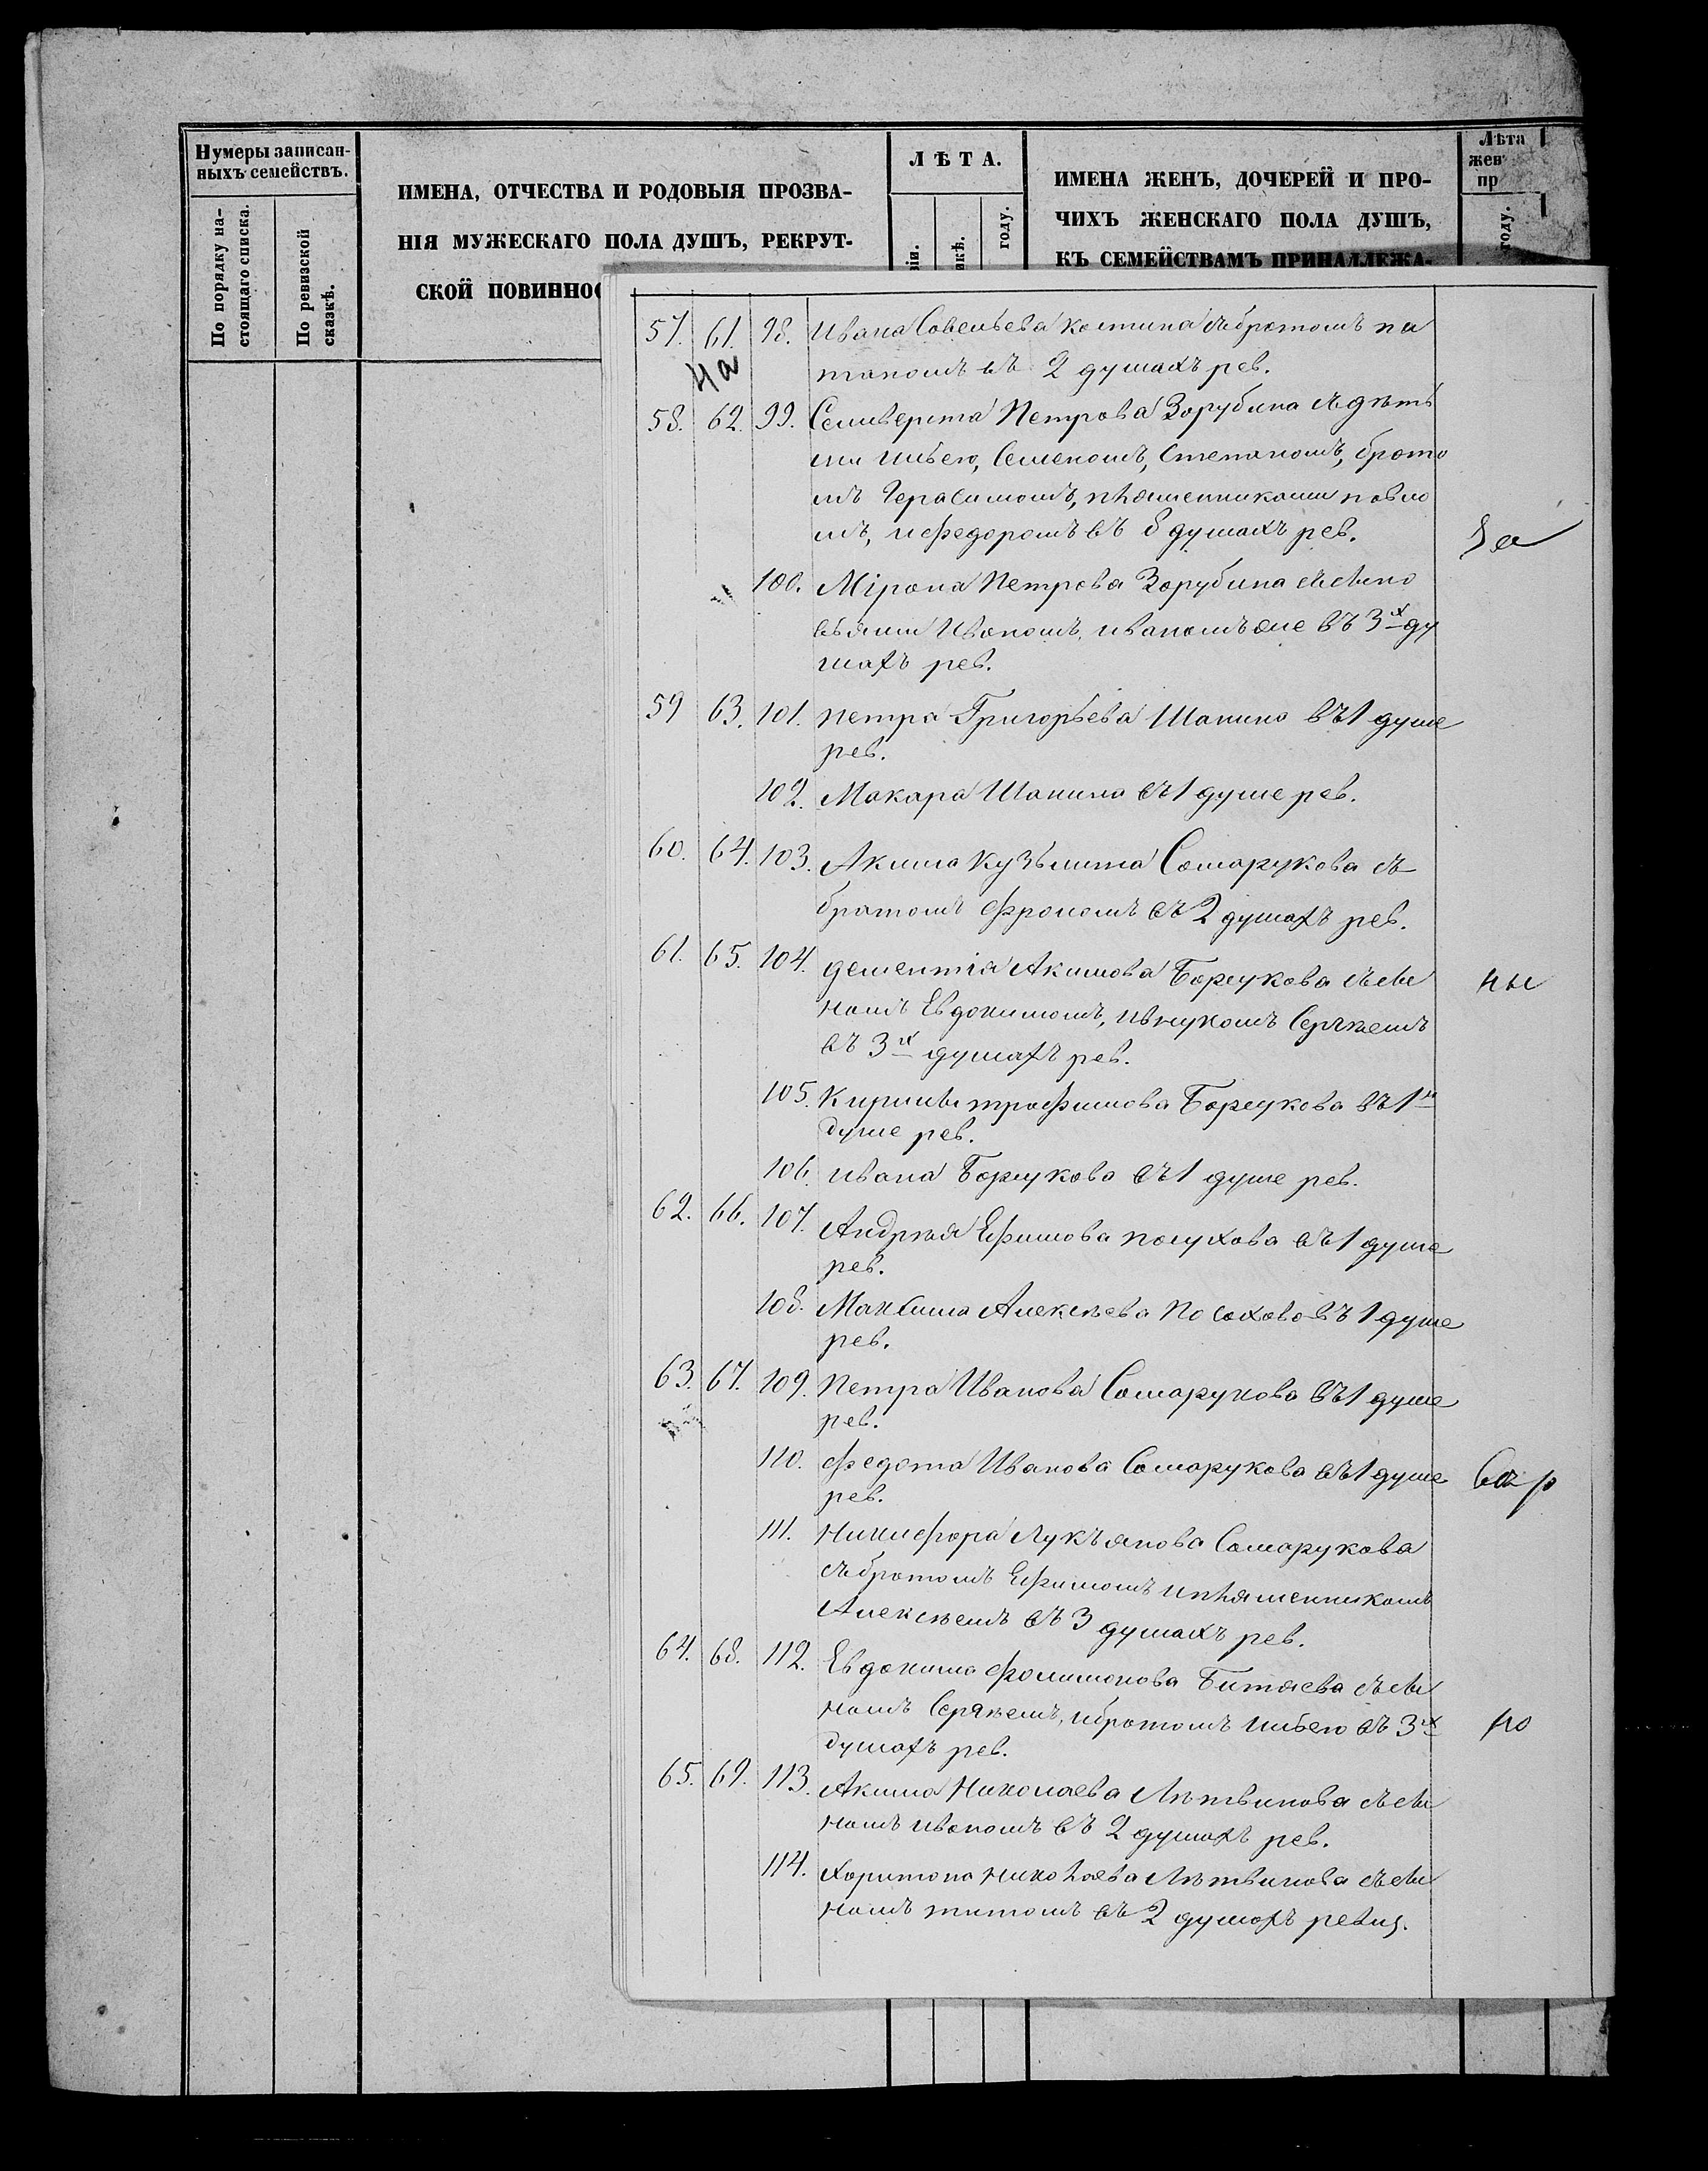 Нумеры записан-
ныхъ семействъ.
По порядку на-
стоящаго списка.
По ревизской
сказкѣ.
ИМЕНА, ОТЧЕСТВА И РОДОВЫЯ ПРОЗВА-
НІЯ МУЖЕСКАГО ПОЛА ДУШЪ, РЕКРУТ-
СКОЙ ПОВИННОС
ЛѢТА.
зіи.
икѣ.
году.
ИМЕНА ЖЕНЪ, ДОЧЕРЕЙ И ПРО-
ЧИХЪ ЖЕНСКАГО ПОЛА ДУШЪ,
КЪ СЕМЕЙСТВАМЪ ПРИНАДЛЕЖА-
Лѣта
жен
пр
году.
57. 61. 98. Ивана Савельева Костина съ братомъ по
таномъ въ 2 душахъ рев.
на
58. 62. 99. Селиверста Петрова Зорубина съ дѣть
ми Ильею, Семеномъ, Степаномъ, брато
мъ Герасимомъ, племенниками павло
мъ, и федоромъ въ 8 душахъ рев.
за
100. Мірона Петрова Зорубина съ сыно
вьями Иваномъ, иваномъ же въ 3х ду
шахъ рев.
59 63. 101. петра Григорьева Шанина въ 1 душе
рев.
102. Макара Шанина въ 1 душе рев.
60. 64. 103. Акима Кузьмина Самарукова съ
братомъ Фроломъ въ 2 душахъ рев.
61. 65. 104. дементія Акимова Борсукова съ сы
номъ Евдокимомъ, и внукомъ Сергѣемъ
въ 3х душахъ рев.
ны
105. Кирилы трофимова Борсукова въ 1й
душе рев.
106. ивана Борсукова въ 1 душе рев.
62. 66. 107. Андрѣя Ефимова посухова въ 1 душе
рев.
108. Максима Алексѣева Посохова въ 1 душе
рев.
63. 67. 109. Петра Иванова Самарукова въ 1 душе
рев.
110. федота Иванова Самарукова въ 1 душе
рев.
вар
111. Никифора Лукъянова Самарукова
съ братомъ Ефимомъ и племенникомъ
Алексѣемъ въ 3 душахъ рев.
64. 68. 112. Евдокима филимонова Битяева съ сы
номъ Сергѣемъ, и братомъ Ильею въ 3х
душахъ рев.
но
65. 69. 113. Акима Николаева Лѣтвинова съ сы
номъ иваномъ въ 2 душахъ рев.
114. Харитона Николаева Лѣтвинова съ сы
номъ титомъ въ 2 душахъ ревиз.